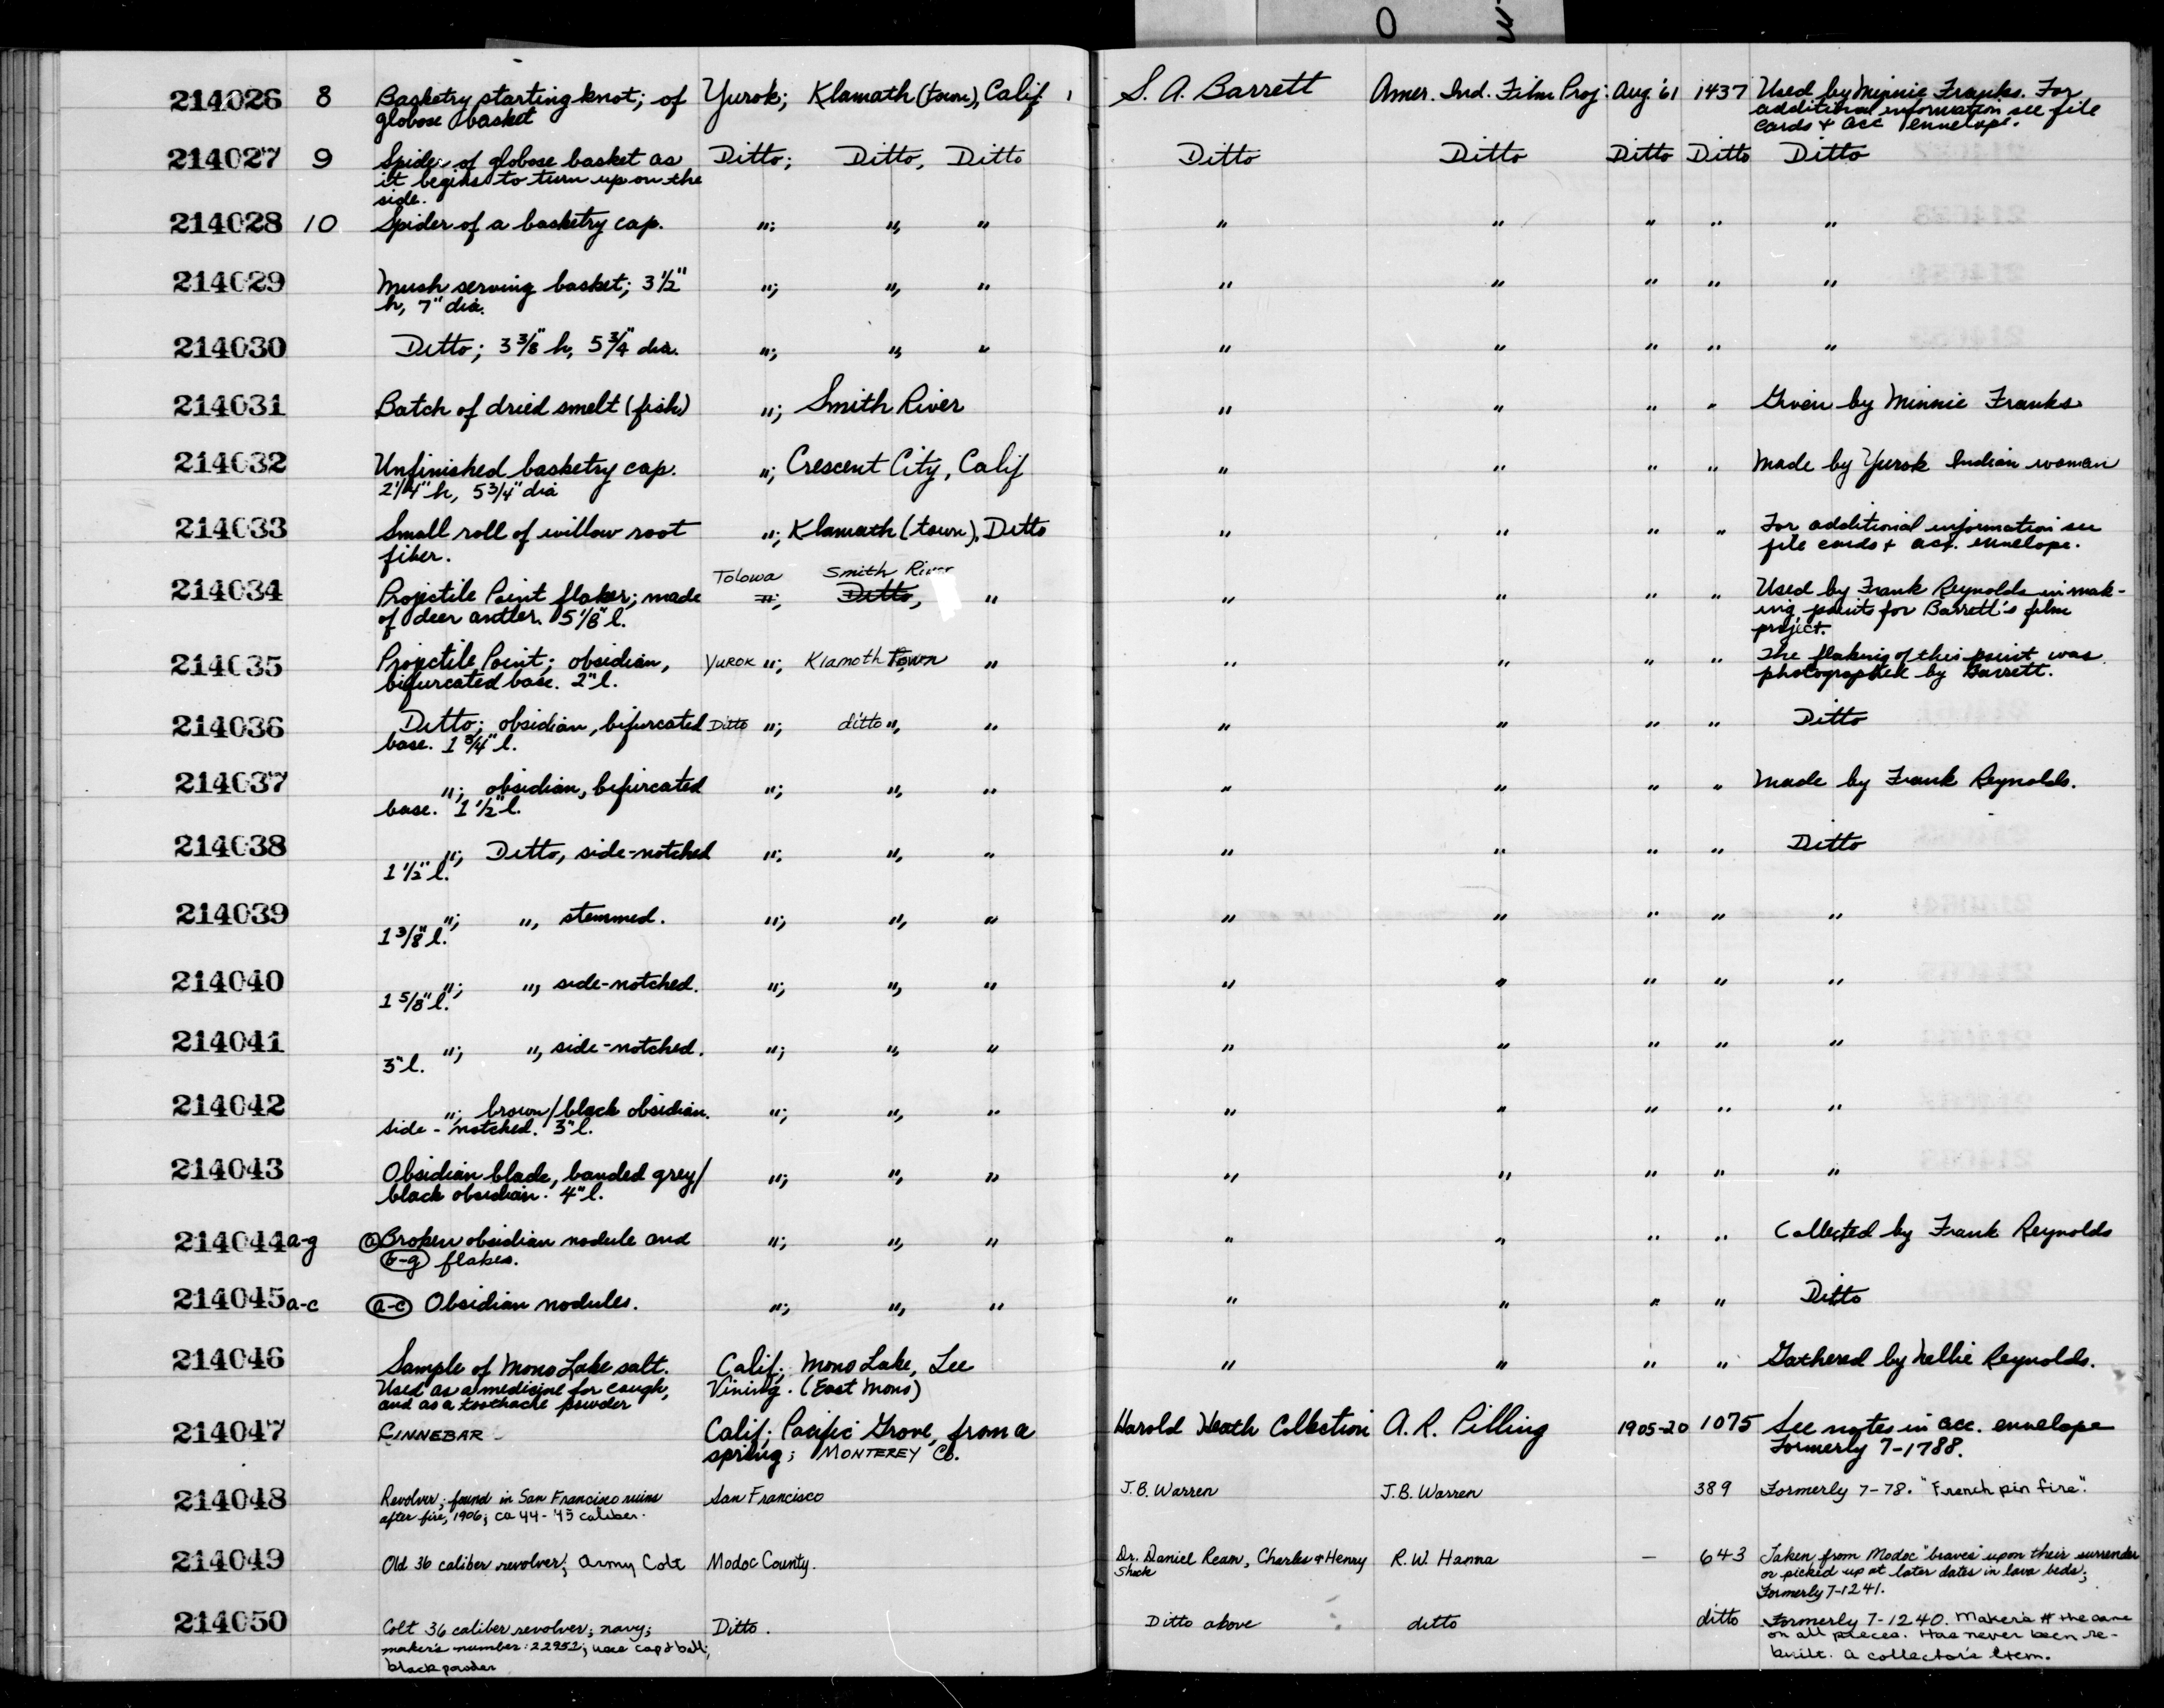 214026 8 Basketry starting knot; of Yurok; Klamath (town), Calif. S. A. Barrett Amer. Ind. Film Proj. Aug. '61 1437 Used by Minnie Franks. For
globose basket additional information see file
cards + acc envelope.
214027 9 Spider of globose basket as Ditto; Ditto, Ditto Ditto Ditto Ditto Ditto Ditto
it begins to turn up on the
side.
214028 10 Spider of a basketry cap. "; ", " " " " " "
214029 Mush serving basket; 3 1/2" "; ", " " " " " "
h, 7" dia.
214030 Ditto; 3 3/8" h, 5 3/4" dia. "; ", " " " " " "
214031 Batch of dried smelt (fish) "; Smith River " " " " Given by Minnie Franks
214032 Unfinished basketry cap. "; Crescent City, Calif " " " " Made by Yurok Indian woman
2 1/4" h, 5 3/4" dia
214033 Small roll of willow root "; Klamath (town), Ditto " " " " For additional information see
fiber. file cards + acc. envelope.
Tolowa Smith River
214034 Projectile Point flaker; made "; Ditto, " " " " " Used by Frank Reynolds in mak-
of deer antler. 5 1/8" l. ing points for Barrett's film
project.
214035 Projectile Point; obsidian, YUROK "; Klamoth Town " " " " " The flaking of this point was
bifurcated base. 2" l. photographed by Barrett.
214036 Ditto; obsidian, bifurcated Ditto "; ditto ", " " " " " Ditto
base. 1 3/4" l.
214037 "; obsidian, bifurcated "; ", " " " " " Made by Frank Reynolds.
base. 1 1/2" l.
214038 "; Ditto, side-notched "; ", " " " " " Ditto
1 1/2" l.
214039 "; ", stemmed. "; ", " " " " " "
1 3/8" l.
214040 "; ", side-notched. "; ", " " " " " "
1 5/8" l.
214041 "; ", side-notched. "; ", " " " " " "
3" l.
214042 "; brown/black obsidian. "; ", " " " " " "
side-notched. 3" l.
214043 Obsidian blade, banded grey/ "; ", " " " " " "
black obsidian. 4" l.
214044 a-g (a) Broken obsidian nodule and "; ", " " " " " Collected by Frank Reynolds
(b-g) flakes.
214045 a-c (a-c) Obsidian nodules. "; ", " " " " " Ditto
214046 Sample of Mono Lake salt. Calif; Mono Lake, Lee " " " " Gathered by Nellie Reynolds.
Used as a medicine for cough, Vining. (East Mono)
and as a toothache powder
214047 CINNEBAR Calif; Pacific Grove, from a Harold Heath Collection A. R. Pilling 1905-20 1075 See notes in acc. envelope
spring; MONTEREY Co. Formerly 7-1788.
214048 Revolver; found in San Francisco ruins San Francisco J.B. Warren J.B. Warren 389 Formerly 7-78. "French pin fire".
after fire, 1906; ca 44-45 caliber.
214049 Old 36 caliber revolver; Army Colt Modoc County. Dr. Daniel Ream, Charles + Henry R.W. Hanna — 643 Taken from Modoc "braves" upon their surrender
Shock or picked up at later dates in lava beds;
Formerly 7-1241.
214050 Colt 36 caliber revolver; navy; Ditto. Ditto above ditto ditto Formerly 7-1240. Maker's # the same
maker's number: 22952; uses cap & ball; on all pieces. Has never been re-
black powder built. A collector's item.